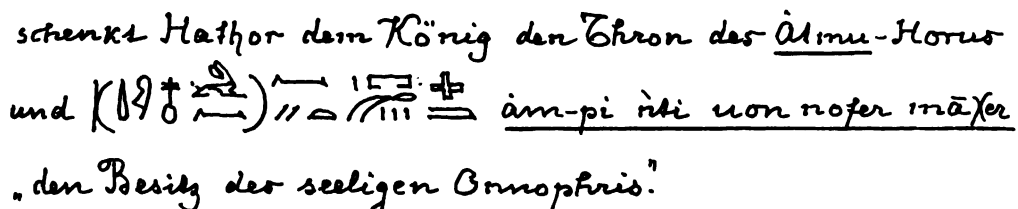 schenkt Hathor dem König den Thron des Åtmu-Horus
und åm-pi nti uon nofer māχer
„den Besitz des seeligen Onnophris."